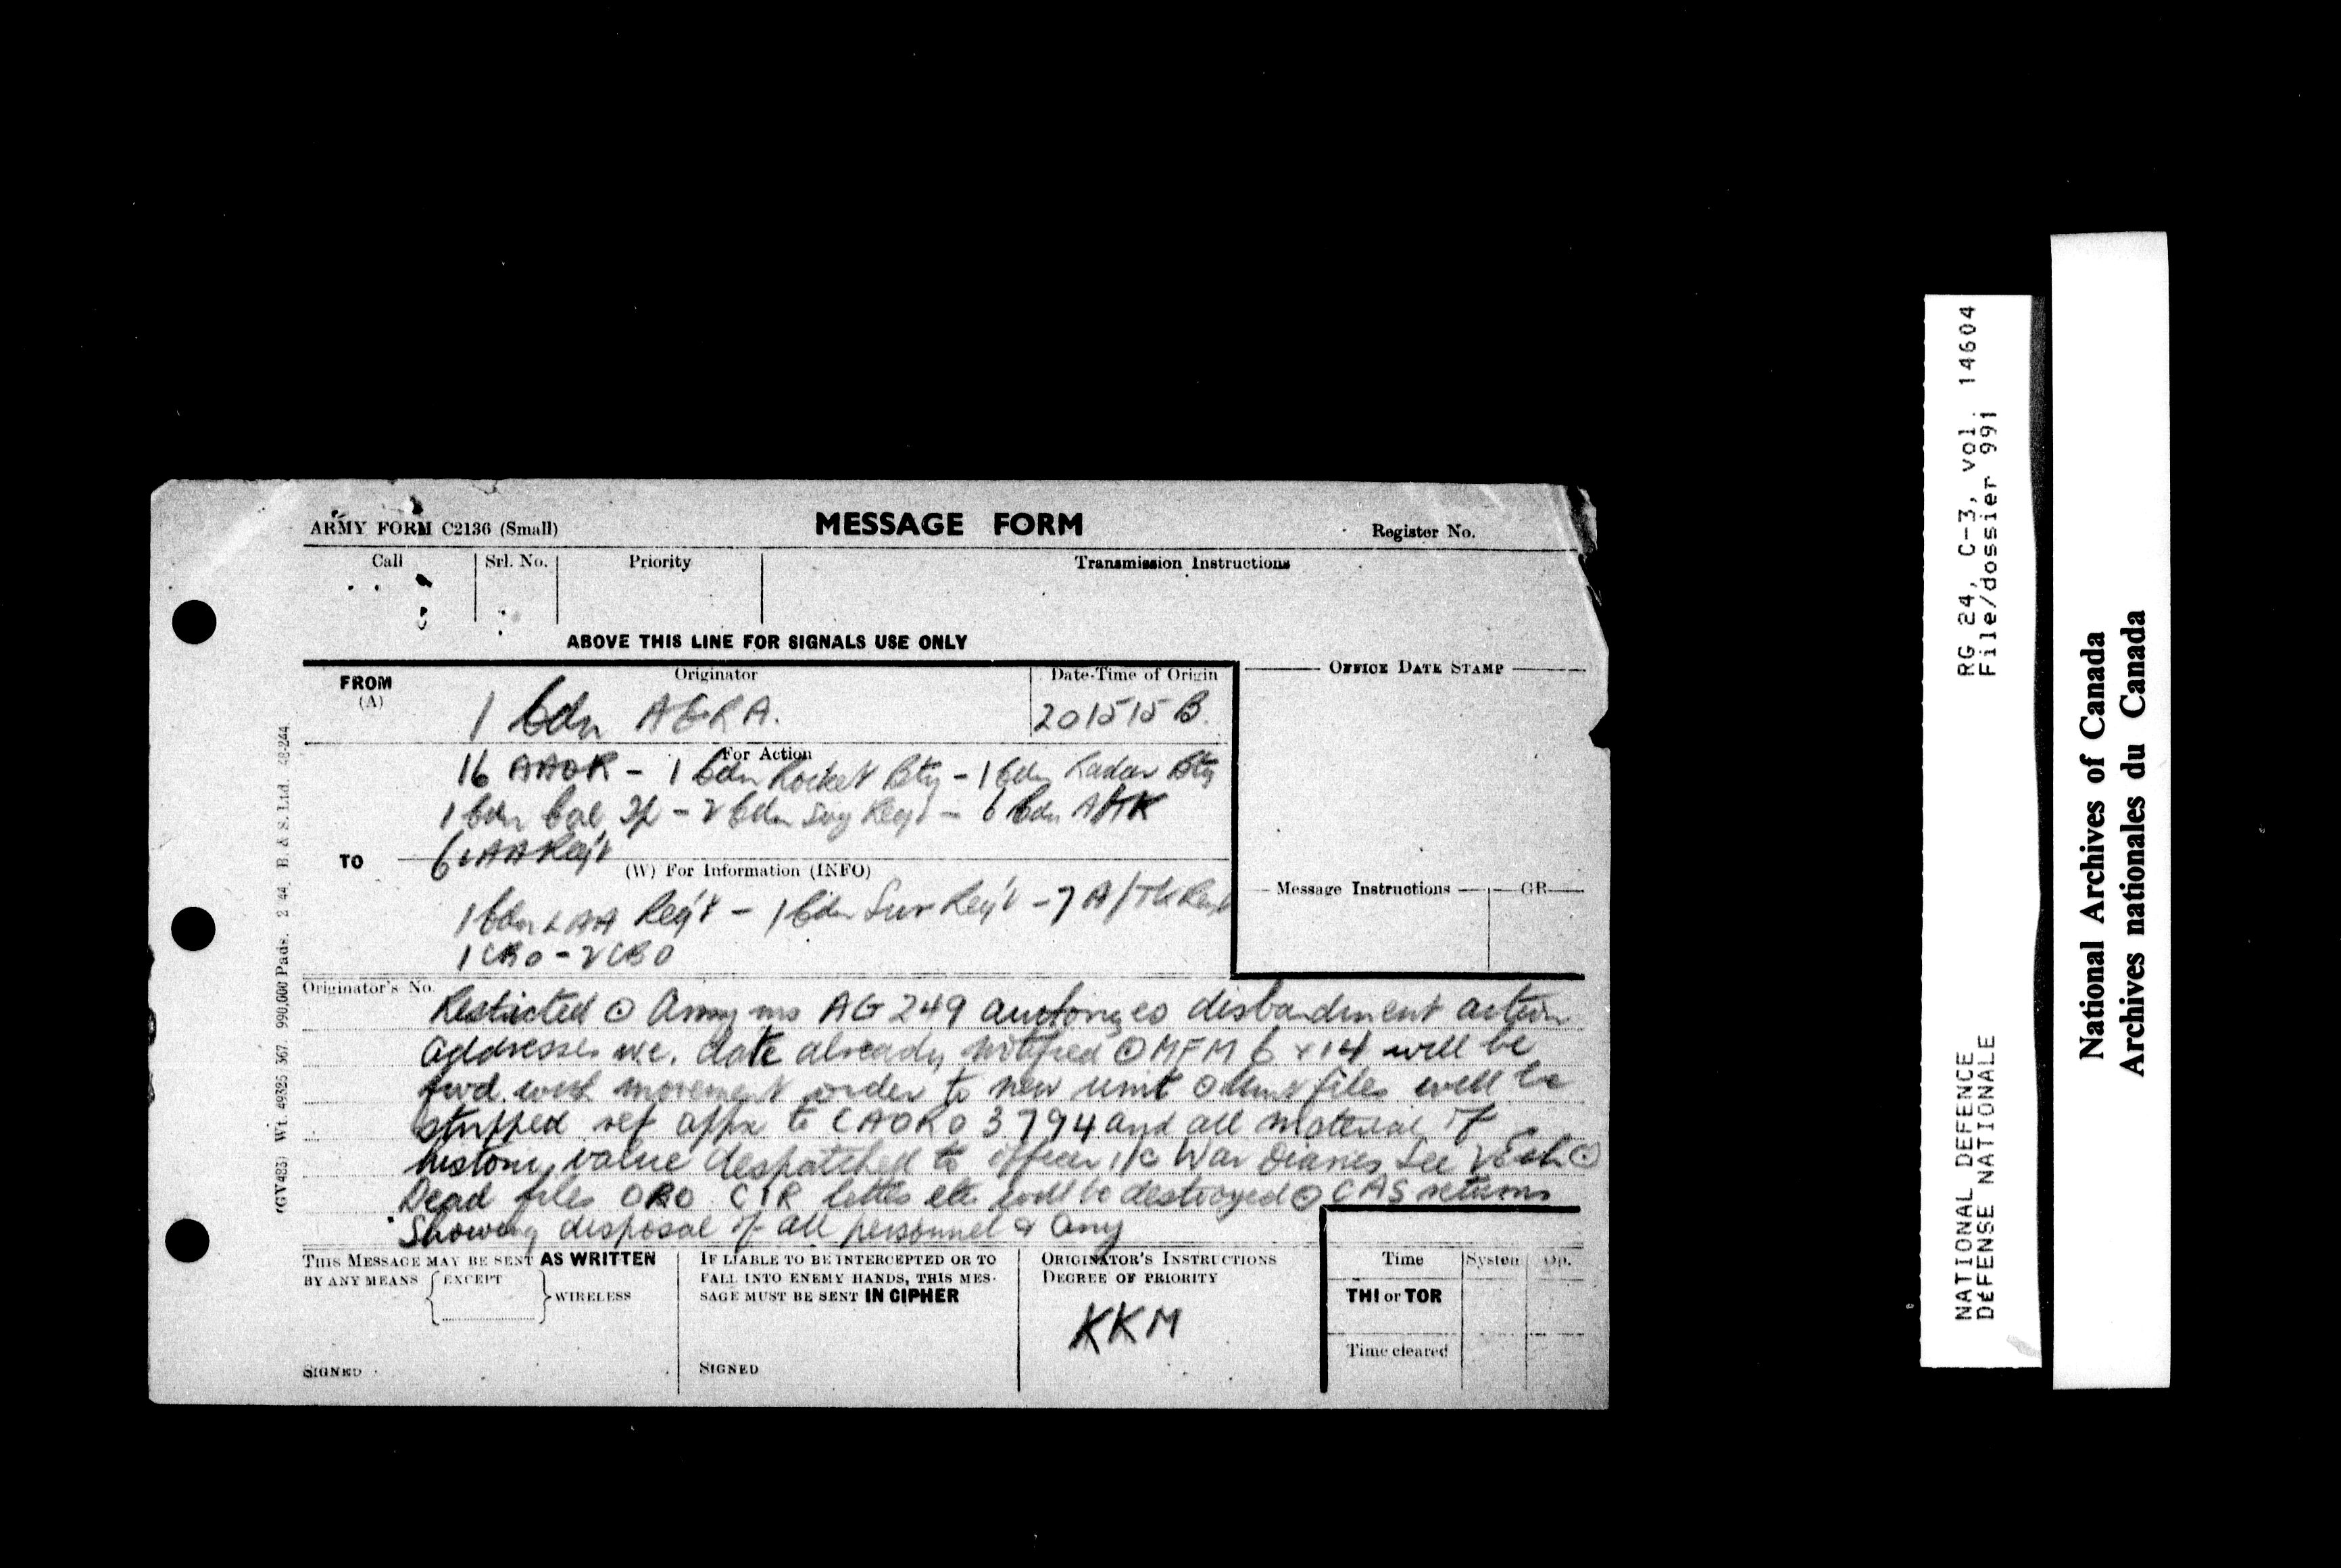 ARMY FORM C2136 (Small)
MESSAGE FORM
Register No.
Call
Srl. No.
Priority
Transmission Instructions
ABOVE THIS LINE FOR SIGNALS USE ONLY
FROM
(A)
Originator
1 Cdn AGRA.
Date-Time of Origin
201515B.
OFFICE DATE STAMP
For Action
16 AAOR - 1 Cdn Rocket Bty - 1 Cdn Radar Bty
1 Cdn Cal - 2 Cdn Svy Regt - 6 Cdn
TO
6 LAA Reg't
(W) For Information (INFO)
1 Cdn LAA Reg't - 1 Cdn Sur Reg't - 7 A/Tk Regt
1 CBO - 2 CBO
Message Instructions
GR
Originator's No.
Restricted ⊙ Army ms AG 249 authorizes disbandment action
addresses w.e. date already notified ⊙ MFM 6 + 14 will be
fwd with movement order to new unit ⊙ files will be
stripped ref appx to CAORO 3794 and all material of
historic value despatched to officer i/c War Diaries Sec 2 Ech ⊙
Dead files ORO CIR letters etc will be destroyed ⊙ CAS returns
Showing disposal of all personnel & any
THIS MESSAGE MAY BE SENT AS WRITTEN
BY ANY MEANS
EXCEPT
WIRELESS
SIGNED
IF LIABLE TO BE INTERCEPTED OR TO
FALL INTO ENEMY HANDS, THIS MES-
SAGE MUST BE SENT IN CIPHER
SIGNED
ORIGINATOR'S INSTRUCTIONS
DEGREE OF PRIORITY
KKM
Time
System
Op.
THI or TOR
Time cleared
(GV483) Wt. 49325/367. 990,000 Pads. 2 44. B. & S. Ltd.
RG 24, C-3, vol. 14604
File/dossier 991
NATIONAL DEFENCE
DÉFENSE NATIONALE
National Archives of Canada
Archives nationales du Canada